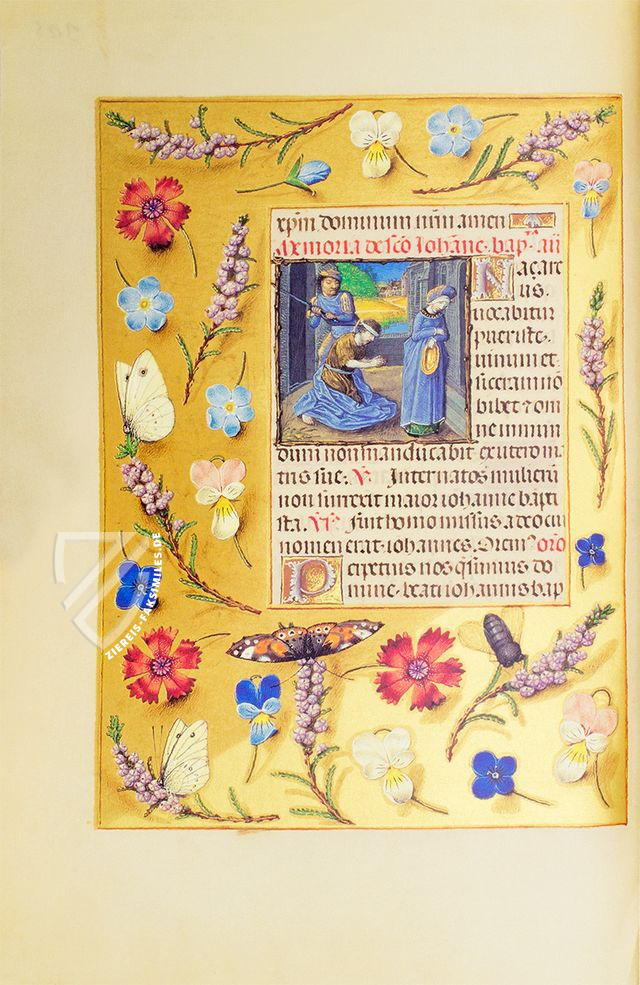 xpm dominum nrm amen
Memoria de sco Iohanne bap. añ
Naçare
us.
uocabitur
puer iste.
uinum et
siceram no
bibet ⁊ om
ne inmun
dum non manducabit ex utero ma
tris sue. V. Inter natos mulierum
non surrexit maior iohanne bapti
sta. V. fuit homo missus a deo cui
nomen erat iohannes. Orem9 oro
Perpetuis nos qs domine
beati iohannis bap
ZIEREIS-FAKSIMILES.DE